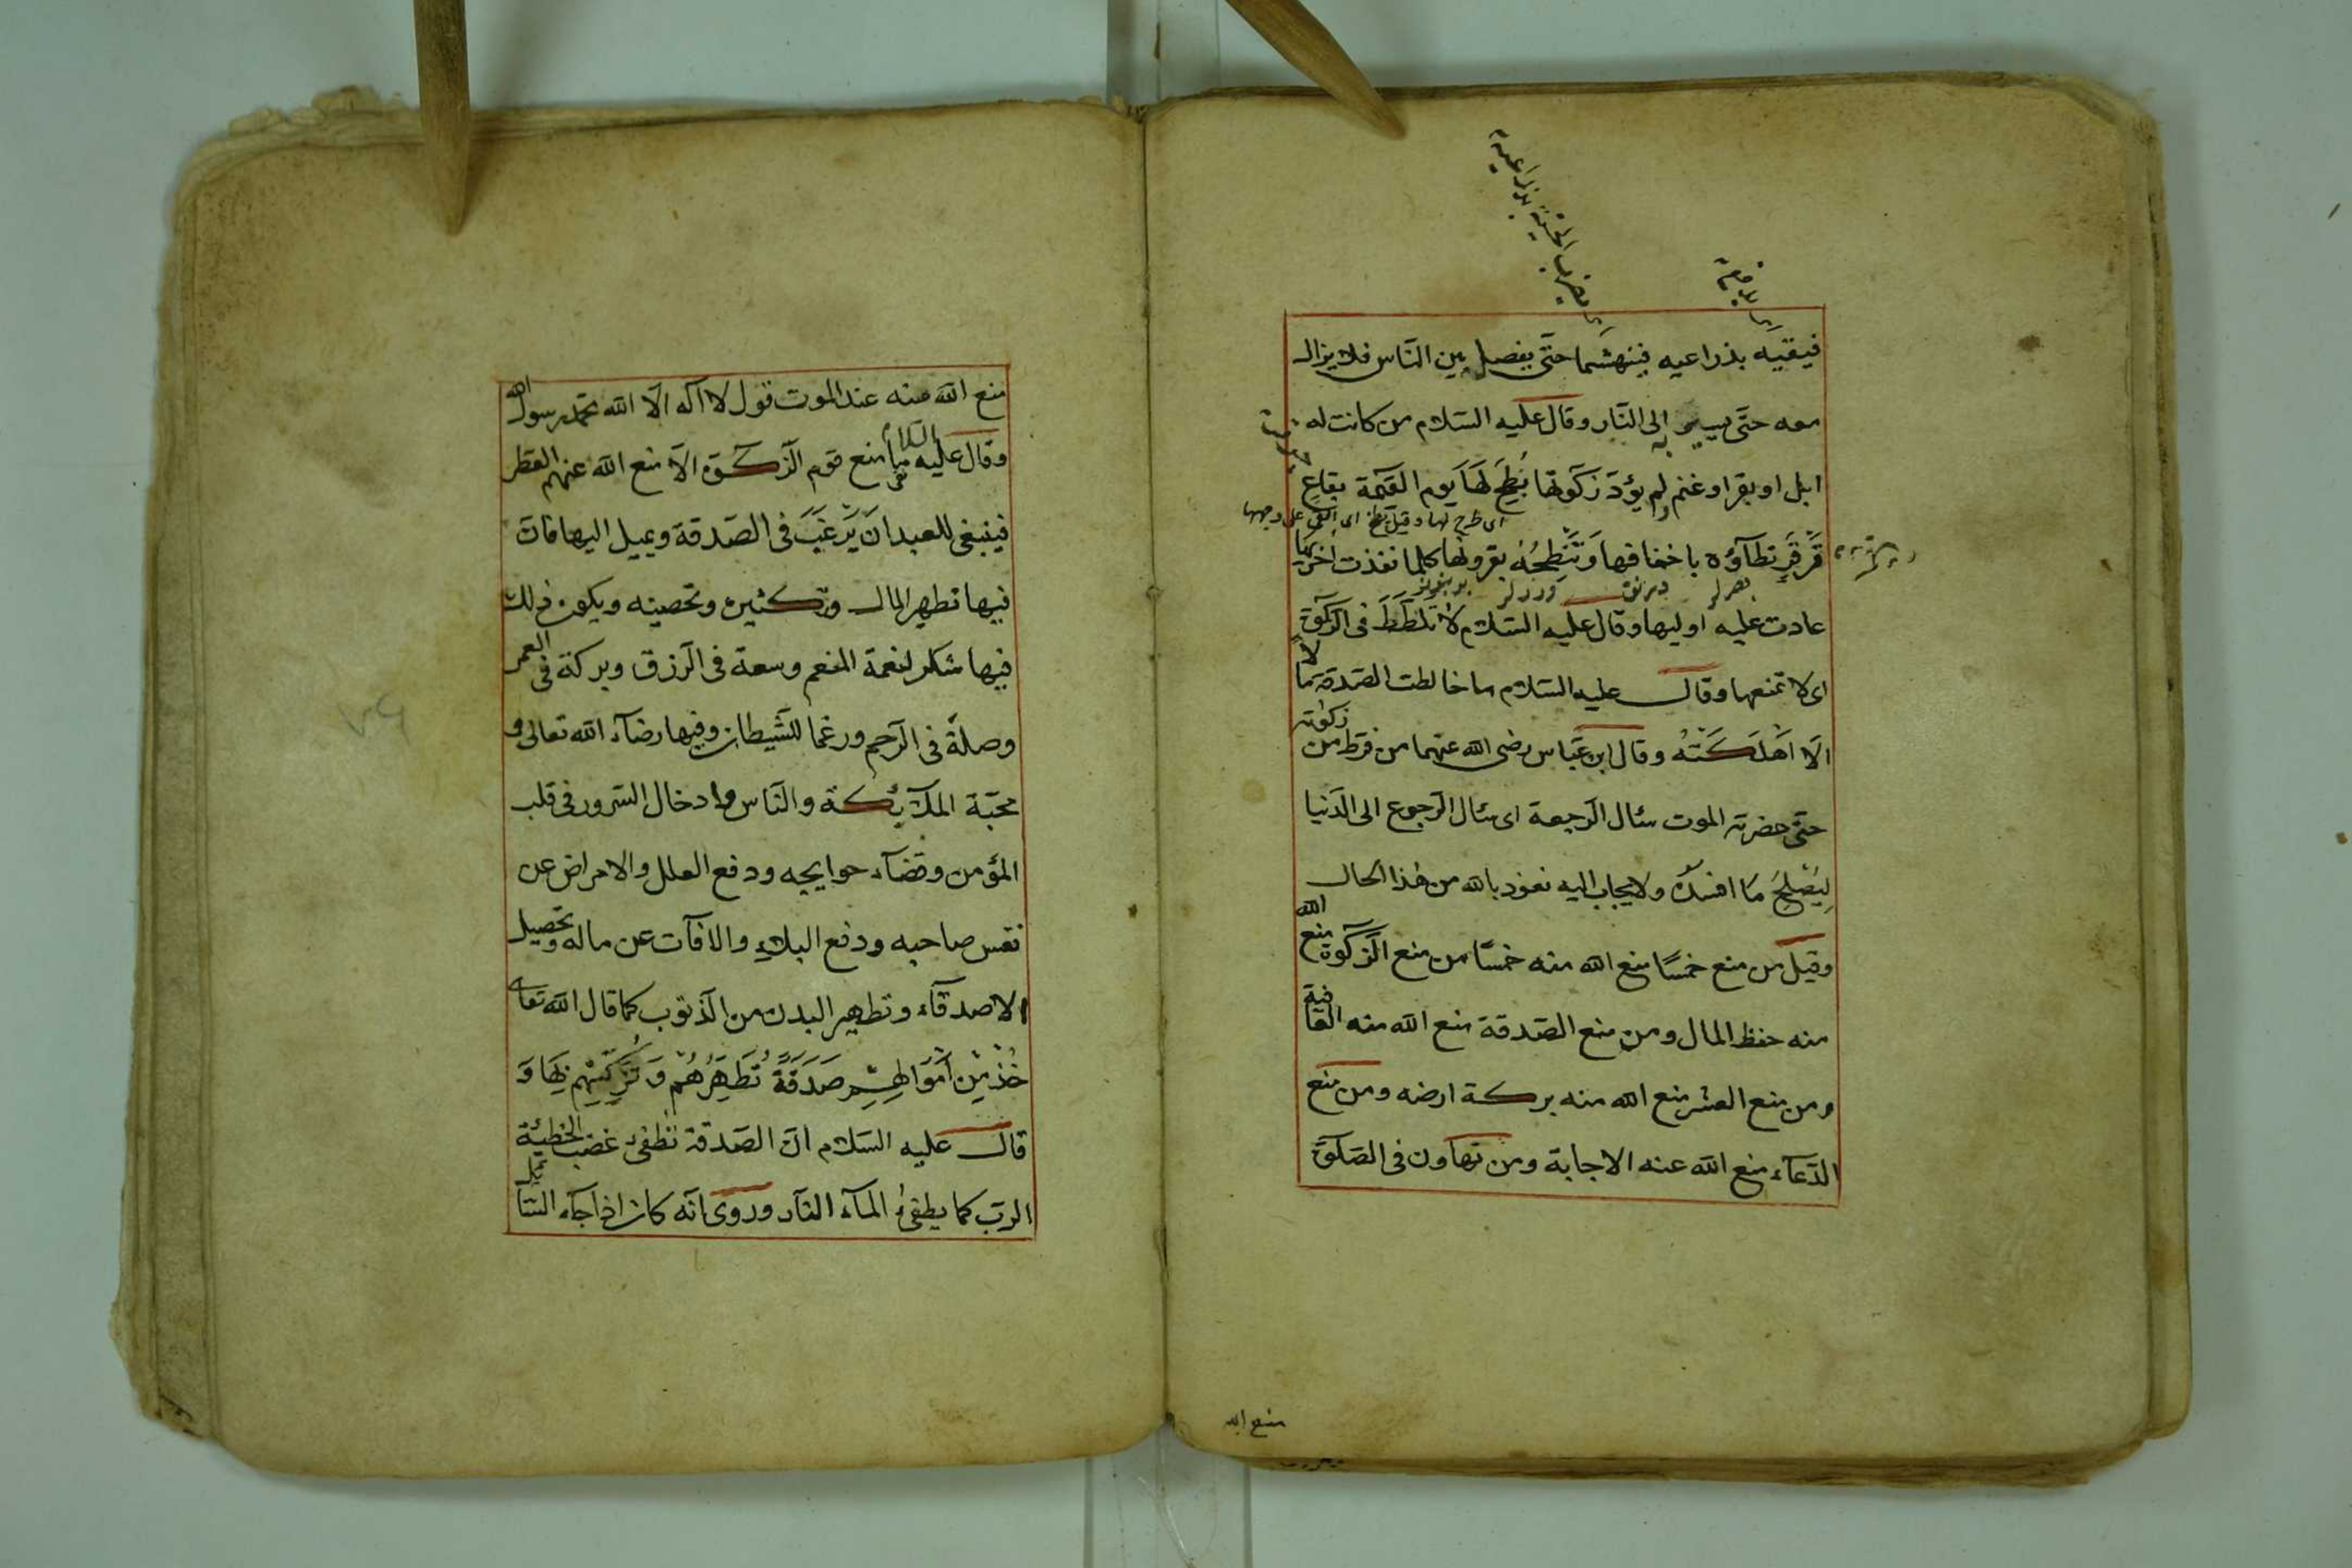 فيقيه بذراعيه فينهشما حتّى يفصل بين النّاس فلا يزال
معه حتّى يسير به الى النّار وقال عليه السّلام من كانت له
ابل او بقر او غنم ولم يؤدّ زكوتها بُطِحَ لَهَا يوم القيمة بقاعٍ
اى طرح لها وقيل بطح اى القى على وجهها
قَرْقَرٍ تطآؤه باخفافها وَتَنْطِحُهُ بقرونها كلما نفذت اُخريها
عادت عليه اوليها وقال عليه السّلام لا تلطَطْ فى الزّكوة
اى لا تمنعها وقال عليه السّلام ما خالطت الصّدقة مالًا
الّا اَهْلَكَتْهُ وقال ابن عبّاس رضى الله عنهما من فرّط من زكوته
حتّى حضرته الموت سئال الرّجعة اى سئال الرّجوع الى الدّنيا
لِيُصْلِحَ مَا افسدَهُ ولا يجاب اليه نعوذ بالله من هذا الحال
وقيل من منع خمسًا منع الله منه خمسًا من منع الزّكوة منع الله
منه حفظ المال ومن منع الصّدقة منع الله منه العافية
ومن منع العشر منع الله منه بركة ارضه ومن منع
الدّعآء منع الله عنه الاجابة ومن تهاون فى الصّلوة
منع الله
منع الله منه عند الموت قول لا اله الّا الله محمّد رسول الله
وقال عليه السّلام ما منع قوم الزّكوة الّا منع الله عنهم القطر
فينبغى للعبد انَ يَرْغَبَ فى الصّدقة ويميل اليها فانّ
فيها تطهير المال وتكثيره وتحصينه ويكون ذلك
فيها شكر لنعمة المنعم وسعة فى الرّزق وبركة فى العمر
وصلةً فى الرّحم ورغما للشّيطان وفيها رضآء الله تعالى و
محبّة الملآئكة والنّاس وادخال السّرور فى قلب
المؤمن وقضآء حوايجه ودفع العلل والامراض عن
نفس صاحبه ودفع البلآء والافآت عن ماله وتحصيل
الاصدقآء وتطهير البدن من الذّنوب كما قال الله تعالى
خُذْ مِنْ اَمْوَالِهِمْ صَدَقَةً تُطَهِّرُهُمْ وَتُزَكِّيهِمْ بِهَا وَ
قال عليه السّلام انّ الصّدقة تطفئ الخطيئة غضب
الربّ كما يطفئُ المآء النّار وروى انّه كان اذا جآء السّآئل